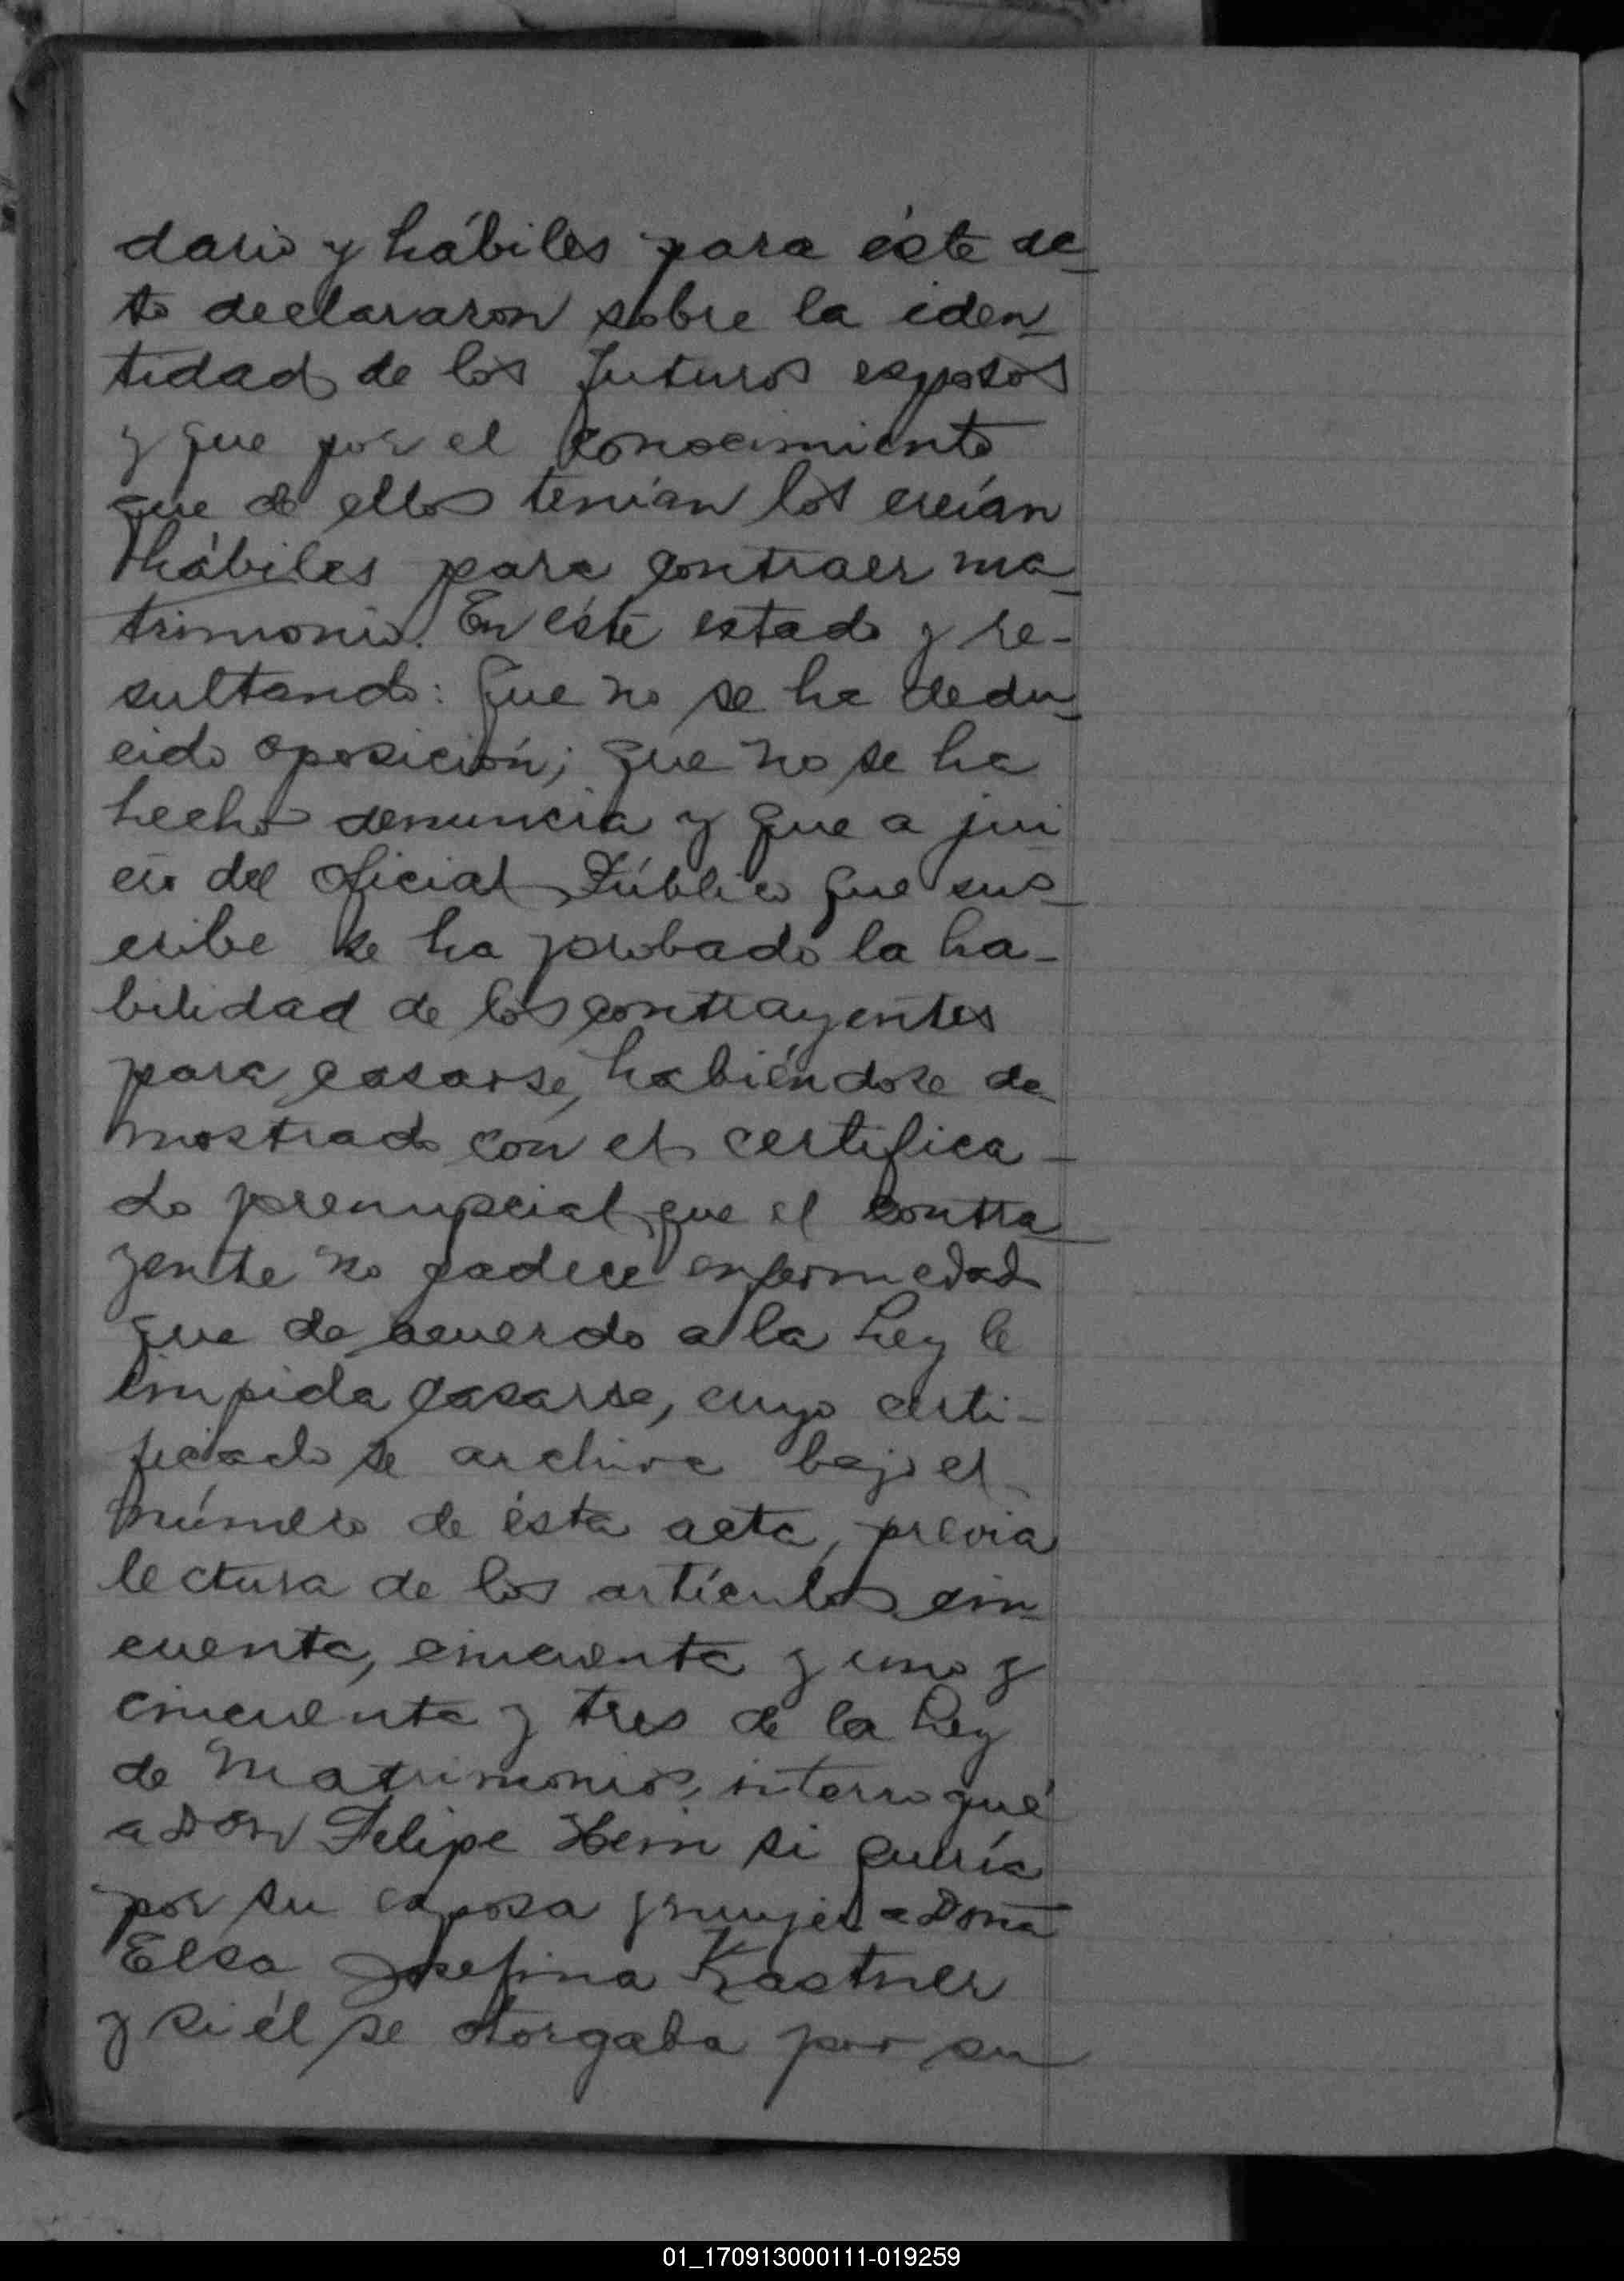 dario y hábiles para éste ac-
to declararon sobre la iden-
tidad de los futuros esposos
y que por el conocimiento
que de ellos tenían los creían
hábiles para contraer ma-
trimonio. En éste estado y re-
sultando: que no se ha dedu-
cido oposición; que no se ha
hecho denuncia y que a jui
cio del Oficial Público que sus-
cribe se ha probado la ha-
bilidad de los contrayentes
para casarse, habiéndose de-
mostrado con el certifica-
do prenupcial que el contra-
yente no padece enfermedad
que de acuerdo a la Ley le
impida casarse, cuyo certi-
ficado se archiva bajo el
número de ésta acta, previa
lectura de los artículos cin-
cuenta, cincuenta y uno y
cincuenta y tres de la Ley
de Matrimonios, interrogué
a Don Felipe Hein si quería
por su esposa y mujer a Doña
Elsa Josefina Kastner
y si él se otorgaba por su
01_170913000111-019259